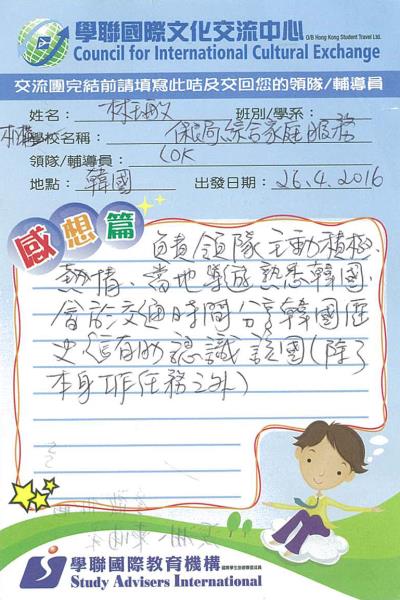 學聯國際文化交流中心
O/B Hong Kong Student Travel Ltd.
Council for International Cultural Exchange
交流團完結前請填寫此咭及交回您的領隊/輔導員
姓名： 林玉敏 班別/學系：
機構
學校名稱： 保良局綜合家庭服務
領隊/輔導員： LOK
地點： 韓國 出發日期： 26.4.2016
感想篇
負責領隊主動積極、
熱情、當地導遊熟悉韓國、
會於交通時間分享韓國歷
史等有助認識該國(除了
本身工作任務之外)
學聯國際教育機構
Study Advisers International